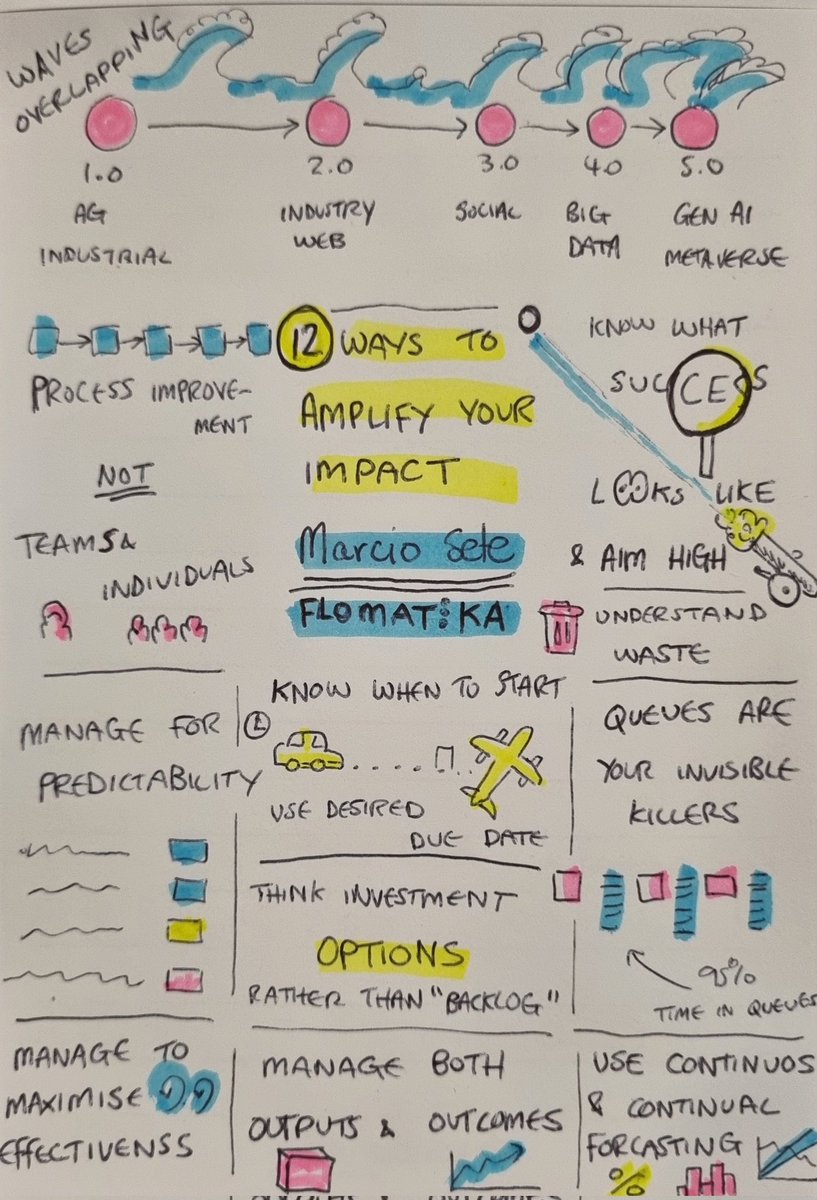 WAVES
OVERLAPPING
1.0
2.0
3.0
4.0
5.0
AG
INDUSTRIAL
INDUSTRY
WEB
SOCIAL
BIG
DATA
GEN AI
METAVERSE
12 WAYS TO
AMPLIFY YOUR
IMPACT
Marcio Sete
FLOMATIKA
PROCESS IMPROVE-
MENT
NOT
TEAMS &
INDIVIDUALS
KNOW WHAT
SUCCESS
LOOKS LIKE
& AIM HIGH
UNDERSTAND
WASTE
MANAGE FOR
PREDICTABILITY
KNOW WHEN TO START
USE DESIRED
DUE DATE
QUEUES ARE
YOUR INVISIBLE
KILLERS
95%
TIME IN QUEUES
THINK INVESTMENT
OPTIONS
RATHER THAN "BACKLOG"
MANAGE TO
MAXIMISE
EFFECTIVENSS
MANAGE BOTH
OUTPUTS & OUTCOMES
USE CONTINUOS
& CONTINUAL
FORCASTING
%